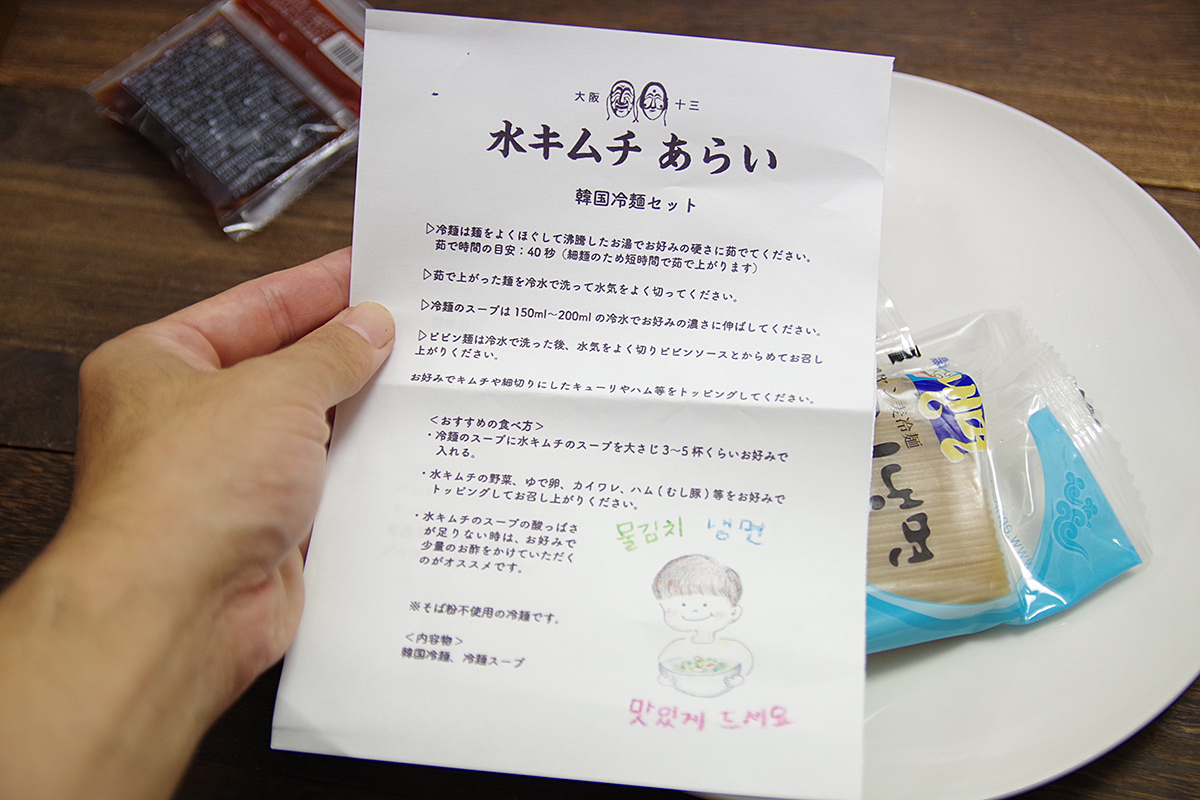 大阪 十三
水キムチ あらい
韓国冷麺セット
▷冷麺は麺をよくほぐして沸騰したお湯でお好みの硬さに茹でてください。
茹で時間の目安：40秒（細麺のため短時間で茹で上がります）
▷茹で上がった麺を冷水で洗って水気をよく切ってください。
▷冷麺のスープは150ml～200mlの冷水でお好みの濃さに伸ばしてください。
▷ビビン麺は冷水で洗った後、水気をよく切りビビンソースとからめてお召し
上がりください。
お好みでキムチや細切りにしたキューリやハム等をトッピングしてください。
＜おすすめの食べ方＞
・冷麺のスープに水キムチのスープを大さじ3～5杯くらいお好みで
入れる。
・水キムチの野菜、ゆで卵、カイワレ、ハム(むし豚)等をお好みで
トッピングしてお召し上がりください。
・水キムチのスープの酸っぱさ
が足りない時は、お好みで
少量のお酢をかけていただく
のがオススメです。
물김치 냉면
※そば粉不使用の冷麺です。
＜内容物＞
韓国冷麺、冷麺スープ
맛있게 드세요
冷麺